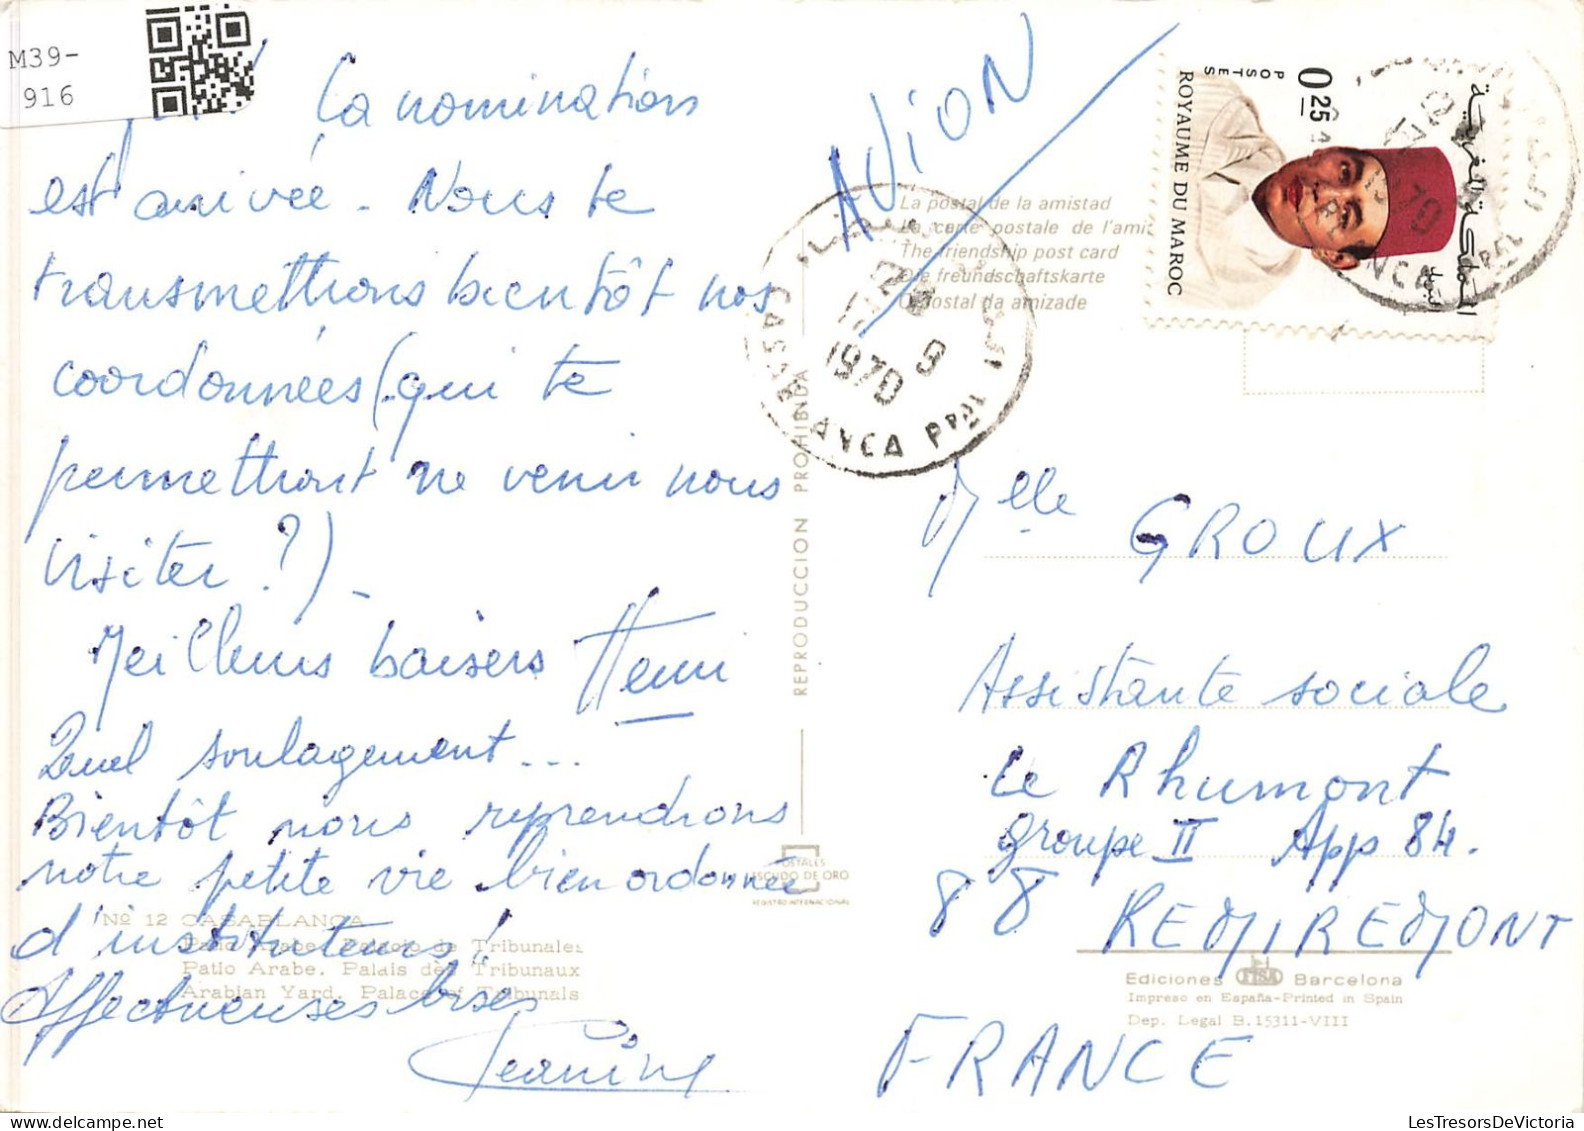 M39-
916
Ça nomination
est arrivée. Nous te
transmettrons bientôt nos
coordonnées (qui te
permettront de venir nous
visiter ?).
Meilleurs baisers Henri
Quel soulagement...
Bientôt nous reprendrons
notre petite vie bien ordonnée
d'instituteurs !
Affectueuses bises
Jeanine
Nº 12 CASABLANCA
Patio Arabe. Palacio de Tribunales
Patio Arabe. Palais des Tribunaux
Arabian Yard. Palace of Tribunals
REPRODUCCION PROHIBIDA
POSTALES
ESCUDO DE ORO
REGISTRO INTERNACIONAL
AVION
La postal de la amistad
La carte postale de l'ami
The friendship post card
Die freundschaftskarte
O postal da amizade
CASABLANCA PPAL
1970
POSTES
0,25
ROYAUME DU MAROC
المملكة المغربية
البريد
Mlle GROUX
Assistante sociale
Le Rhumont
groupe II App 84.
88 REMIREMONT
FRANCE
Ediciones FISA Barcelona
Impreso en España-Printed in Spain
Dep. Legal B. 15311-VIII
LesTresorsDeVictoria